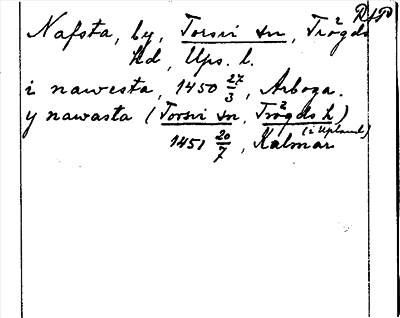 RAP
Nafsta, by, Torsvi sn, Trögds
hd, Ups. l.
i nawesta, 1450 27/3, Arboga.
y nawasta (Torsvi sn, Trögds h)
(i Upland)
1451 20/7, Kalmar